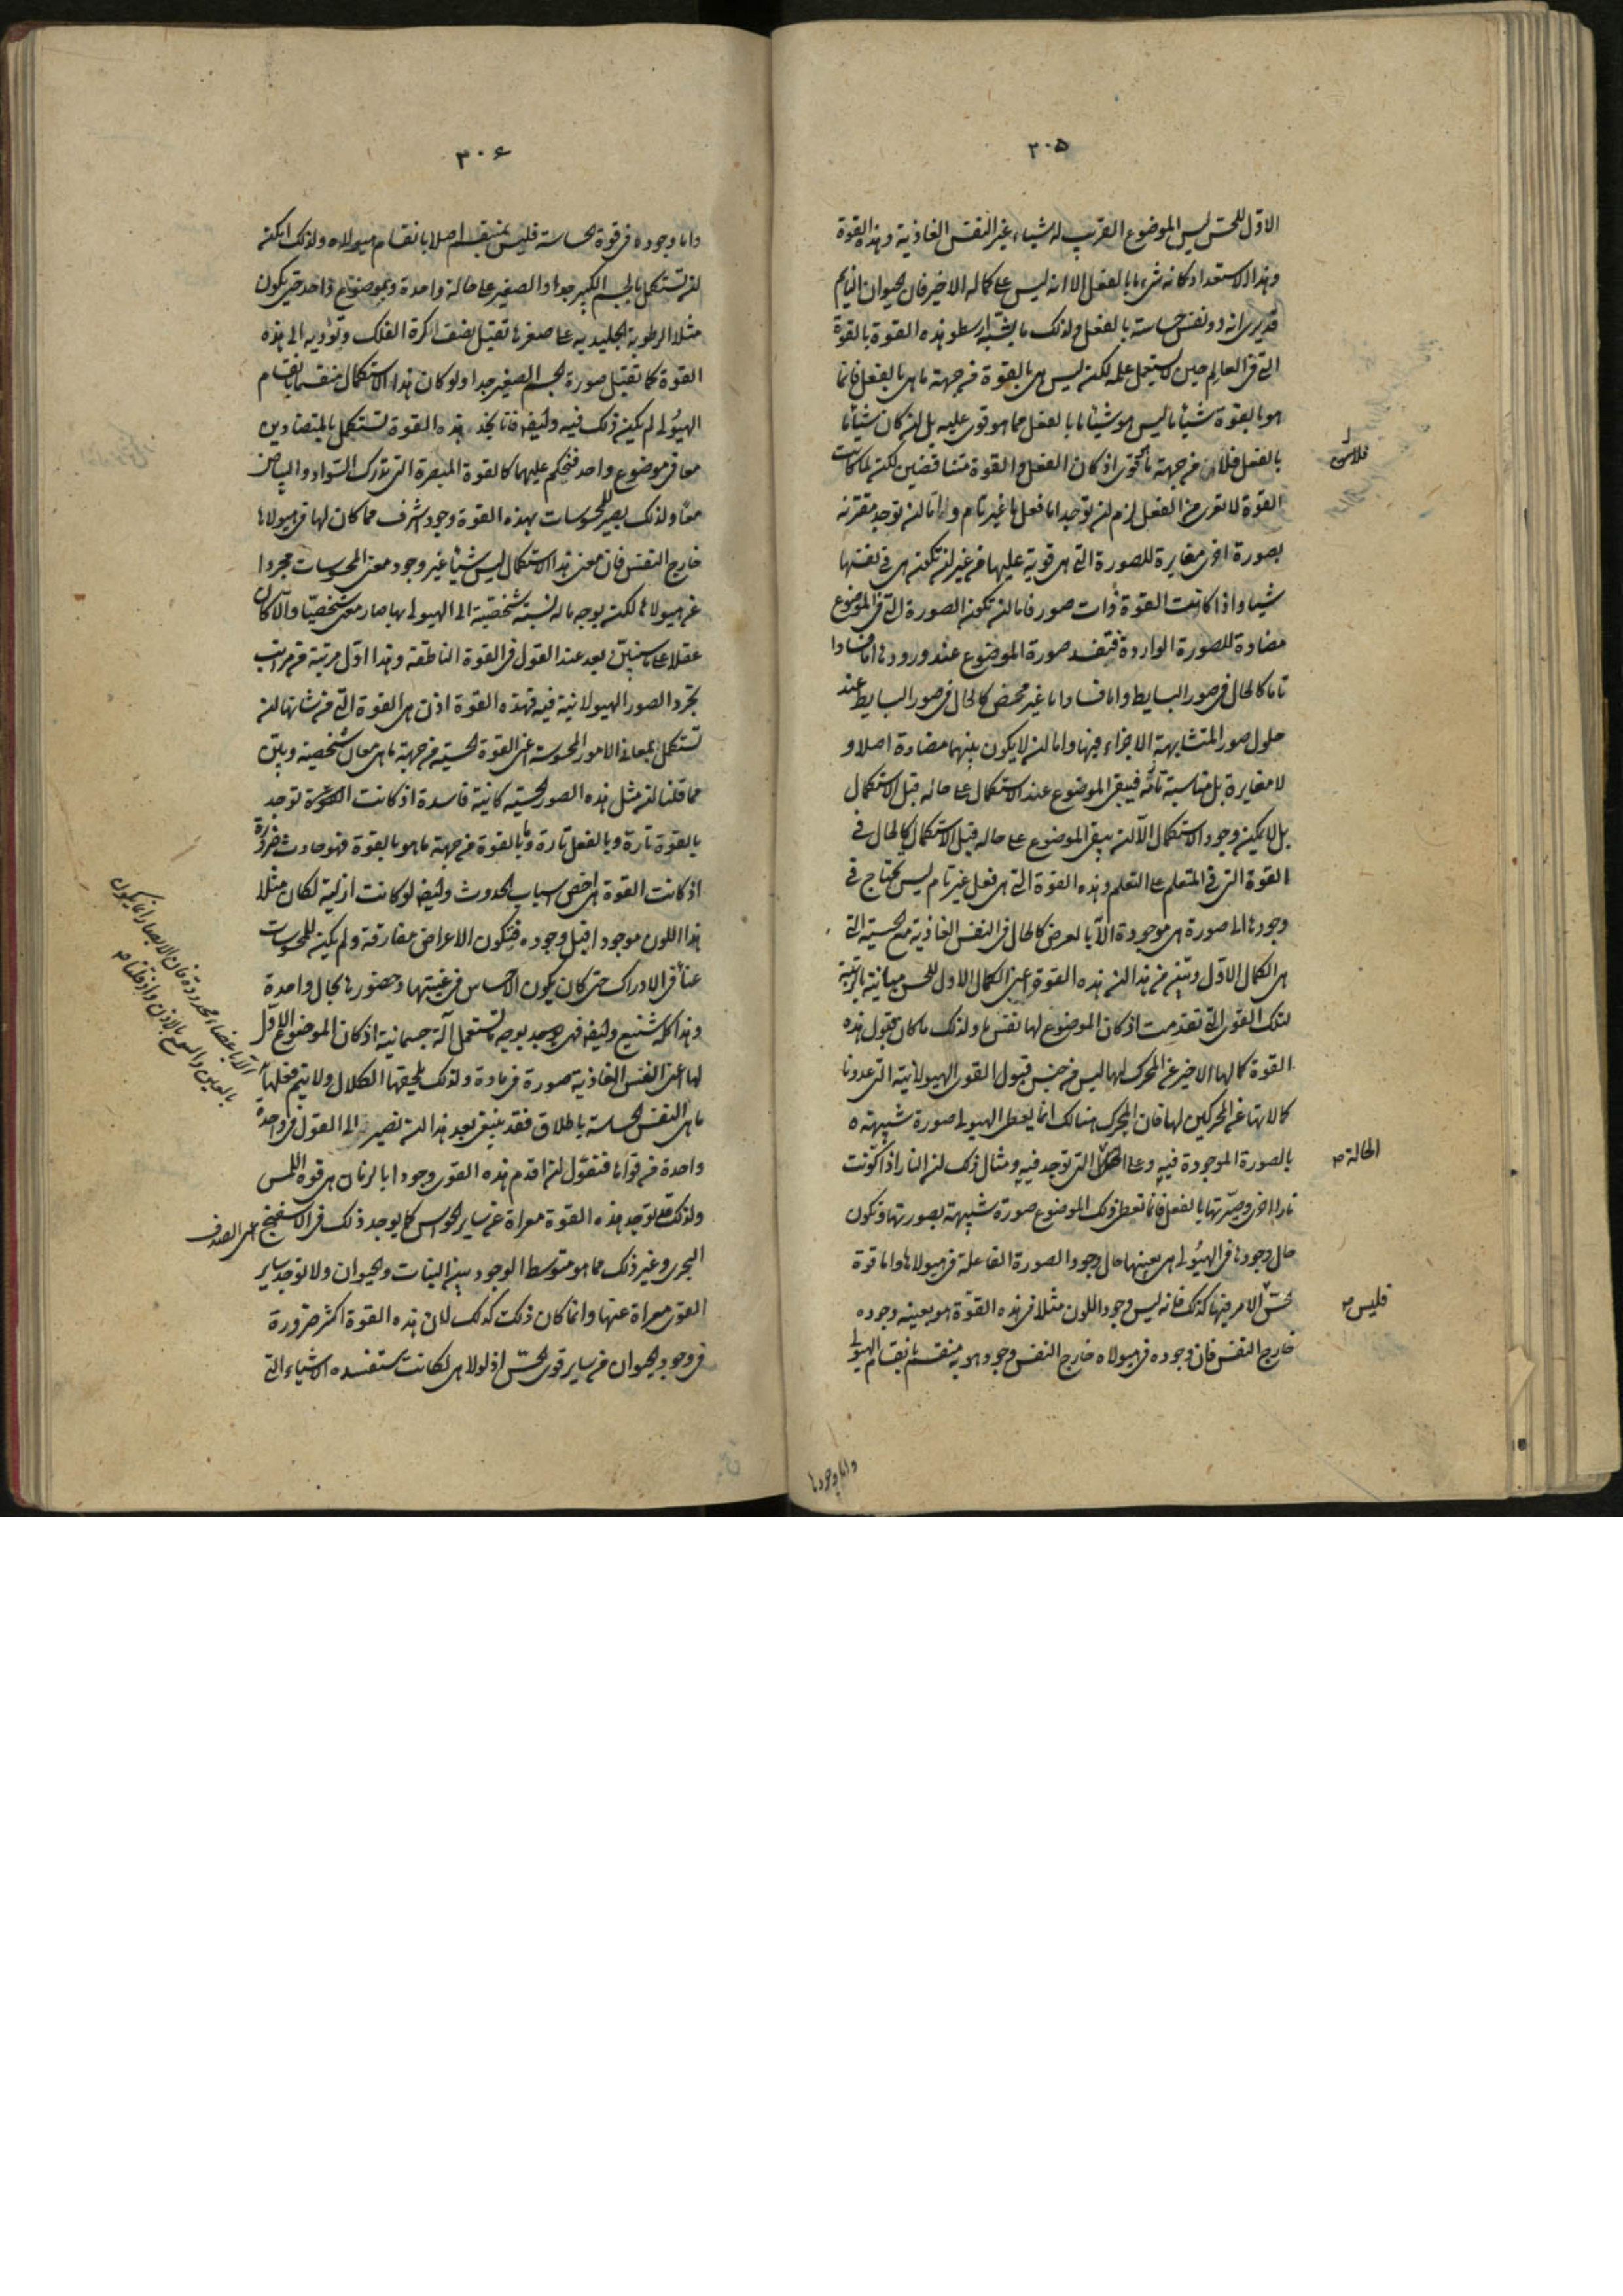 ٣٠٥
الاول للحس ليس الموضوع القريب له شياء غير النفس الغاذية وهذه القوة
وهذا الاستعداد كانه شىء ما بالفعل الا انه ليس على كماله الاخير فان الحيوان النايم
قد يرى انه ذو نفس حساسة بالفعل ولذلك ما يشبه ارسطو هذه القوة بالقوة
التى فى العالم حين لا يستعمل علمه لكنه ليس هى بالقوة من جهة ما هى بالفعل فانما
هو بالقوة شيأ ما ليس هو شيأ ما بالفعل مما هو قوى عليه بل ان كان شيأ ما
بالفعل فلا من جهة ما هو قوى اذ كان الفعل والقوة متناقضين لكنه لما كانت
القوة لا تعرى من الفعل لزم ان توجد اما فعل ما غير تام واما ان توجد مقترنة
بصورة اخرى مغايرة للصورة التى هى قوية عليها من غير ان تكون هى فى نفسها
شيأ واذا كانت القوة ذات صور فاما ان تكون الصورة التى فى الموضوع
مضادة للصورة الواردة فتفسد صورة الموضوع عند ورودها اما فسادا
تاما كالحال فى صور البسايط واما فسادا ما غير محض كالحال فى صور البسايط عند
حلول صور المتشابهة الاجزاء فيها واما ان لا يكون بينهما مضادة اصلا و
لا مغايرة بل مناسبة تامة فيبقى الموضوع عند الاستكمال على حاله قبل الاستكمال
بل لا يمكن وجود الاستكمال الا ان يبقى الموضوع على حاله قبل الاستكمال كالحال فى
القوة التى فى المتعلم على التعلم وهذه القوة التى هى فعل غير تام ليس تحتاج فى
وجودها الى صورة هى موجودة الا بالعرض كالحال فى النفس الغاذية مع الحسية التى
هى الكمال الاول وتبين من هذا ان هذه القوة اعنى الكمال الاول للحس مباينة بالرتبة
لتلك القوى التى تقدمت اذ كان الموضوع لها نفس ما ولذلك ما كان قبول هذه
القوة كمالها الاخير عن المحرك لها ليس من جنس قبول القوى الهيولانية التى عددنا
كمالاتها عن المحركين لها فان المحرك هنالك انما يعطى الهيولى صورة شبيهة
بالصورة الموجودة فيه وعلى التى توجد فيه ومثال ذلك ان النار اذا كونت
نارا اخرى وصيرتها بالفعل فانما تعطى ذلك الموضوع صورة شبيهة بصورتها وتكون
حال وجودها فى الهيولى هى بعينها حال وجود الصورة الفاعلة فى هيولاها واما قوة
حس الامر فيها كذلك فانه ليس وجود اللون مثلا فى هذه القوة هو بعينه وجوده
خارج النفس فان وجوده فى هيولاه خارج النفس وجود هو به منقسم بانقسام الهيولى
الحالة صح
فليس صح
واما وجودها
٣٠٦
واما وجوده فى قوة الحاسة فليس بمنقسم اصلا بانقسام هيولاه ولذلك امكنه
ان تستكمل بالجسم الكبير جدا والصغير على حالة واحدة وبموضوع واحد حتى يكون
مثلا الرطوبة الجليدية على صغرها تقبل نصف كرة الفلك وتؤديه الى هذه
القوة كما تقبل صورة الجسم الصغير جدا ولو كان هذا الاستكمال منقسما بانقسام
الهيولى لم يكن ذلك فيه وايضا فانا نجد هذه القوة تستكمل بالمتضادين
معا فى موضوع واحد فنحكم عليهما كالقوة المبصرة التى تدرك السواد والبياض
معا ولذلك يصير للمحسوسات بهذه القوة وجود اشرف مما كان لها فى هيولاها
خارج النفس فان معنى هذا الاستكمال ليس شيأ غير وجود معنى المحسوسات مجردا
عن هيولاها لكنه بوجه ما له نسبة شخصية الى الهيولى بها صار معنى شخصيا والا كان
عقلا على ما سنبين بعد عند القول فى القوة الناطقة وهذا اول مرتبة من مراتب
تجرد الصور الهيولانية فيه فهذه القوة اذن هى القوة التى من شانها ان
تستكمل بمعانى الامور المحسوسة اعنى القوة الحسية من جهة ما هى معان شخصية وبين
مما قلنا ان مثل هذه الصور الحسية كائنة فاسدة اذ كانت توجد
بالقوة تارة وبالفعل تارة وما بالقوة من جهة ما هو بالقوة فهو حادث ضرورة
اذ كانت القوة هى اخص اسباب الحدوث وايضا لو كانت ازلية لكان مثلا
هذا اللون موجودا قبل وجوده فتكون الاعراض مفارقة ولم يكن للمحسوسات
عنا فى الادراك حتى كان يكون الاحساس فى غيبتها وحضورها بحال واحدة
وهذا كله شنيع وايضا فهى بوجه ما تستعمل آلة جسمانية اذ كان الموضوع الاول
لها اعنى النفس الغاذية صورة فى مادة ولذلك يلحقها الكلال ولا يتم فعلها
ما هى النفس الحساسة باطلاق فقد ينبغى بعد هذا ان نصير الى القول فى واحدة
واحدة من قواها فنقول ان اقدم هذه القوى وجودا بالزمان هى قوة اللمس
ولذلك قد توجد هذه القوة معراة عن ساير الحواس كما يوجد ذلك فى الاسفنج البحرى الصدف
البحرى وغير ذلك مما هو متوسط الوجود بين النبات والحيوان ولا توجد ساير
القوى معراة عنها وانما كان ذلك كذلك لان هذه القوة اكثر ضرورة
فى وجود الحيوان من ساير قوى الحس اذ لولا هى لكانت ستفسده الاشياء التى
الا باعضاء محدودة فان الابصار انما يكون
بالعين والسمع بالاذن واذ قلنا صح